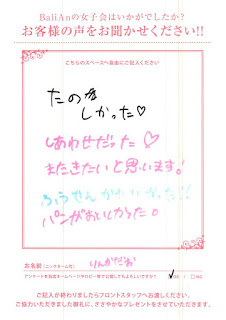 BaliAnの女子会はいかがでしたか?
お客様の声をお聞かせください!!
こちらのスペースへ自由にご記入ください
たのま
しかった♡
しあわせだった♡
またきたいと思います!
ふうせんかわいかった!!
パンがおいしかった。
お名前(ニックネーム可)
りんかだお
アンケートを当店ホームページやロビー等で公開してもよろしいですか?
YES / □NO
ご記入が終わりましたらフロントスタッフへお渡しください。
ご協力いただきました御礼に、ささやかなプレゼントをさせていただきます。